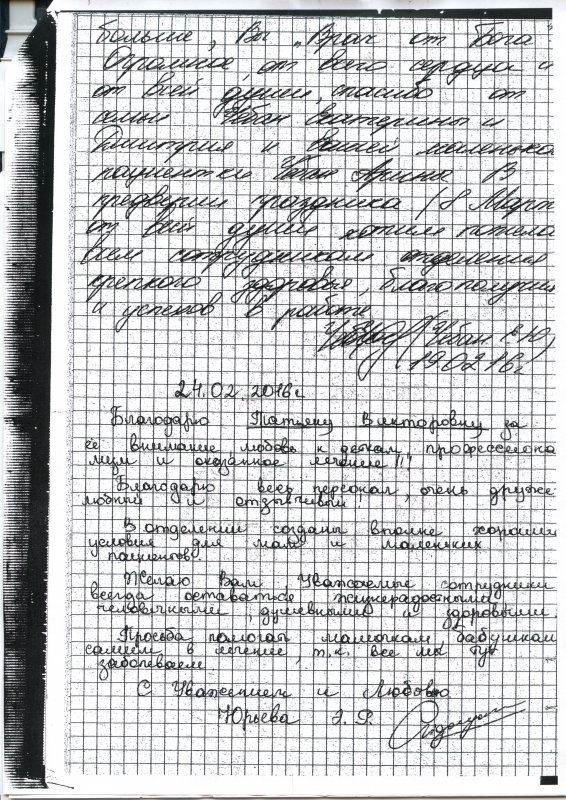 больше, Вы „Врач от Бога
Огромное, от всего сердца и
от всей души, спасибо от
семьи Чебан Екатерины и
Дмитрия и Вашей маленько
пациентки Чебан Арины В
предверии праздника / 8 Март
от всей души хотим пожела
всем сотрудникам отделения
крепкого здоровья, благополучия
и успехов в работе
(Чебан Е.Ю)
19.02.16г
24.02.2016г
Благодарю Татьяну Викторовну за
её внимание любовь к деткам, профессиона
лизм и оказанное лечение!!!
Благодарю весь персонал, очень друже
любный и отзывчивый
В отделении созданы вполне хорошие
условия для мам и маленьких
пациентов.
Желаю Вам, Уважаемые сотрудники
всегда оставаться жизнерадостными
человечными, душевными и здоровыми
Просьба помогать мамочкам, бабушкам
самим в лечение, т.к. все мы тут
заболеваем
С Уважением и Любовью
Юрьева Э. Р.